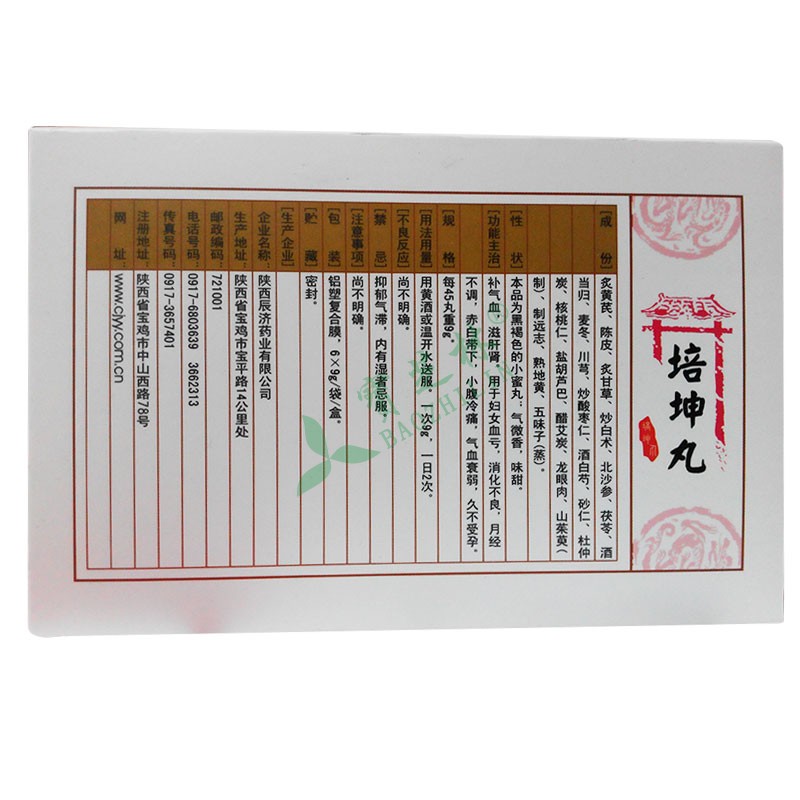 培坤丸
[成 份] 炙黄芪、陈皮、炙甘草、炒白术、北沙参、茯苓、酒
当归、麦冬、川芎、炒酸枣仁、酒白芍、砂仁、杜仲
炭、核桃仁、盐胡芦巴、醋艾炭、龙眼肉、山茱萸(
制)、制远志、熟地黄、五味子(蒸)。
[性 状] 本品为黑褐色的小蜜丸;气微香,味甜。
[功能主治] 补气血,滋肝肾。用于妇女血亏,消化不良,月经
不调,赤白带下,小腹冷痛,气血衰弱,久不受孕。
[规 格] 每45丸重9g
[用法用量] 用黄酒或温开水送服。一次9g,一日2次。
[不良反应] 尚不明确。
[禁 忌] 抑郁气滞,内有湿者忌服。
[注意事项] 尚不明确。
[包 装] 铝塑复合膜,6×9g/袋/盒。
[贮 藏] 密封。
[生产企业]
企业名称:陕西辰济药业有限公司
生产地址:陕西省宝鸡市宝平路14公里处
邮政编码:721001
电话号码:0917-6803639 3662313
传真号码:0917-3657401
注册地址:陕西省宝鸡市中山西路78号
网 址:www.cjyy.com.cn
寶芝林
BAOZHILIN